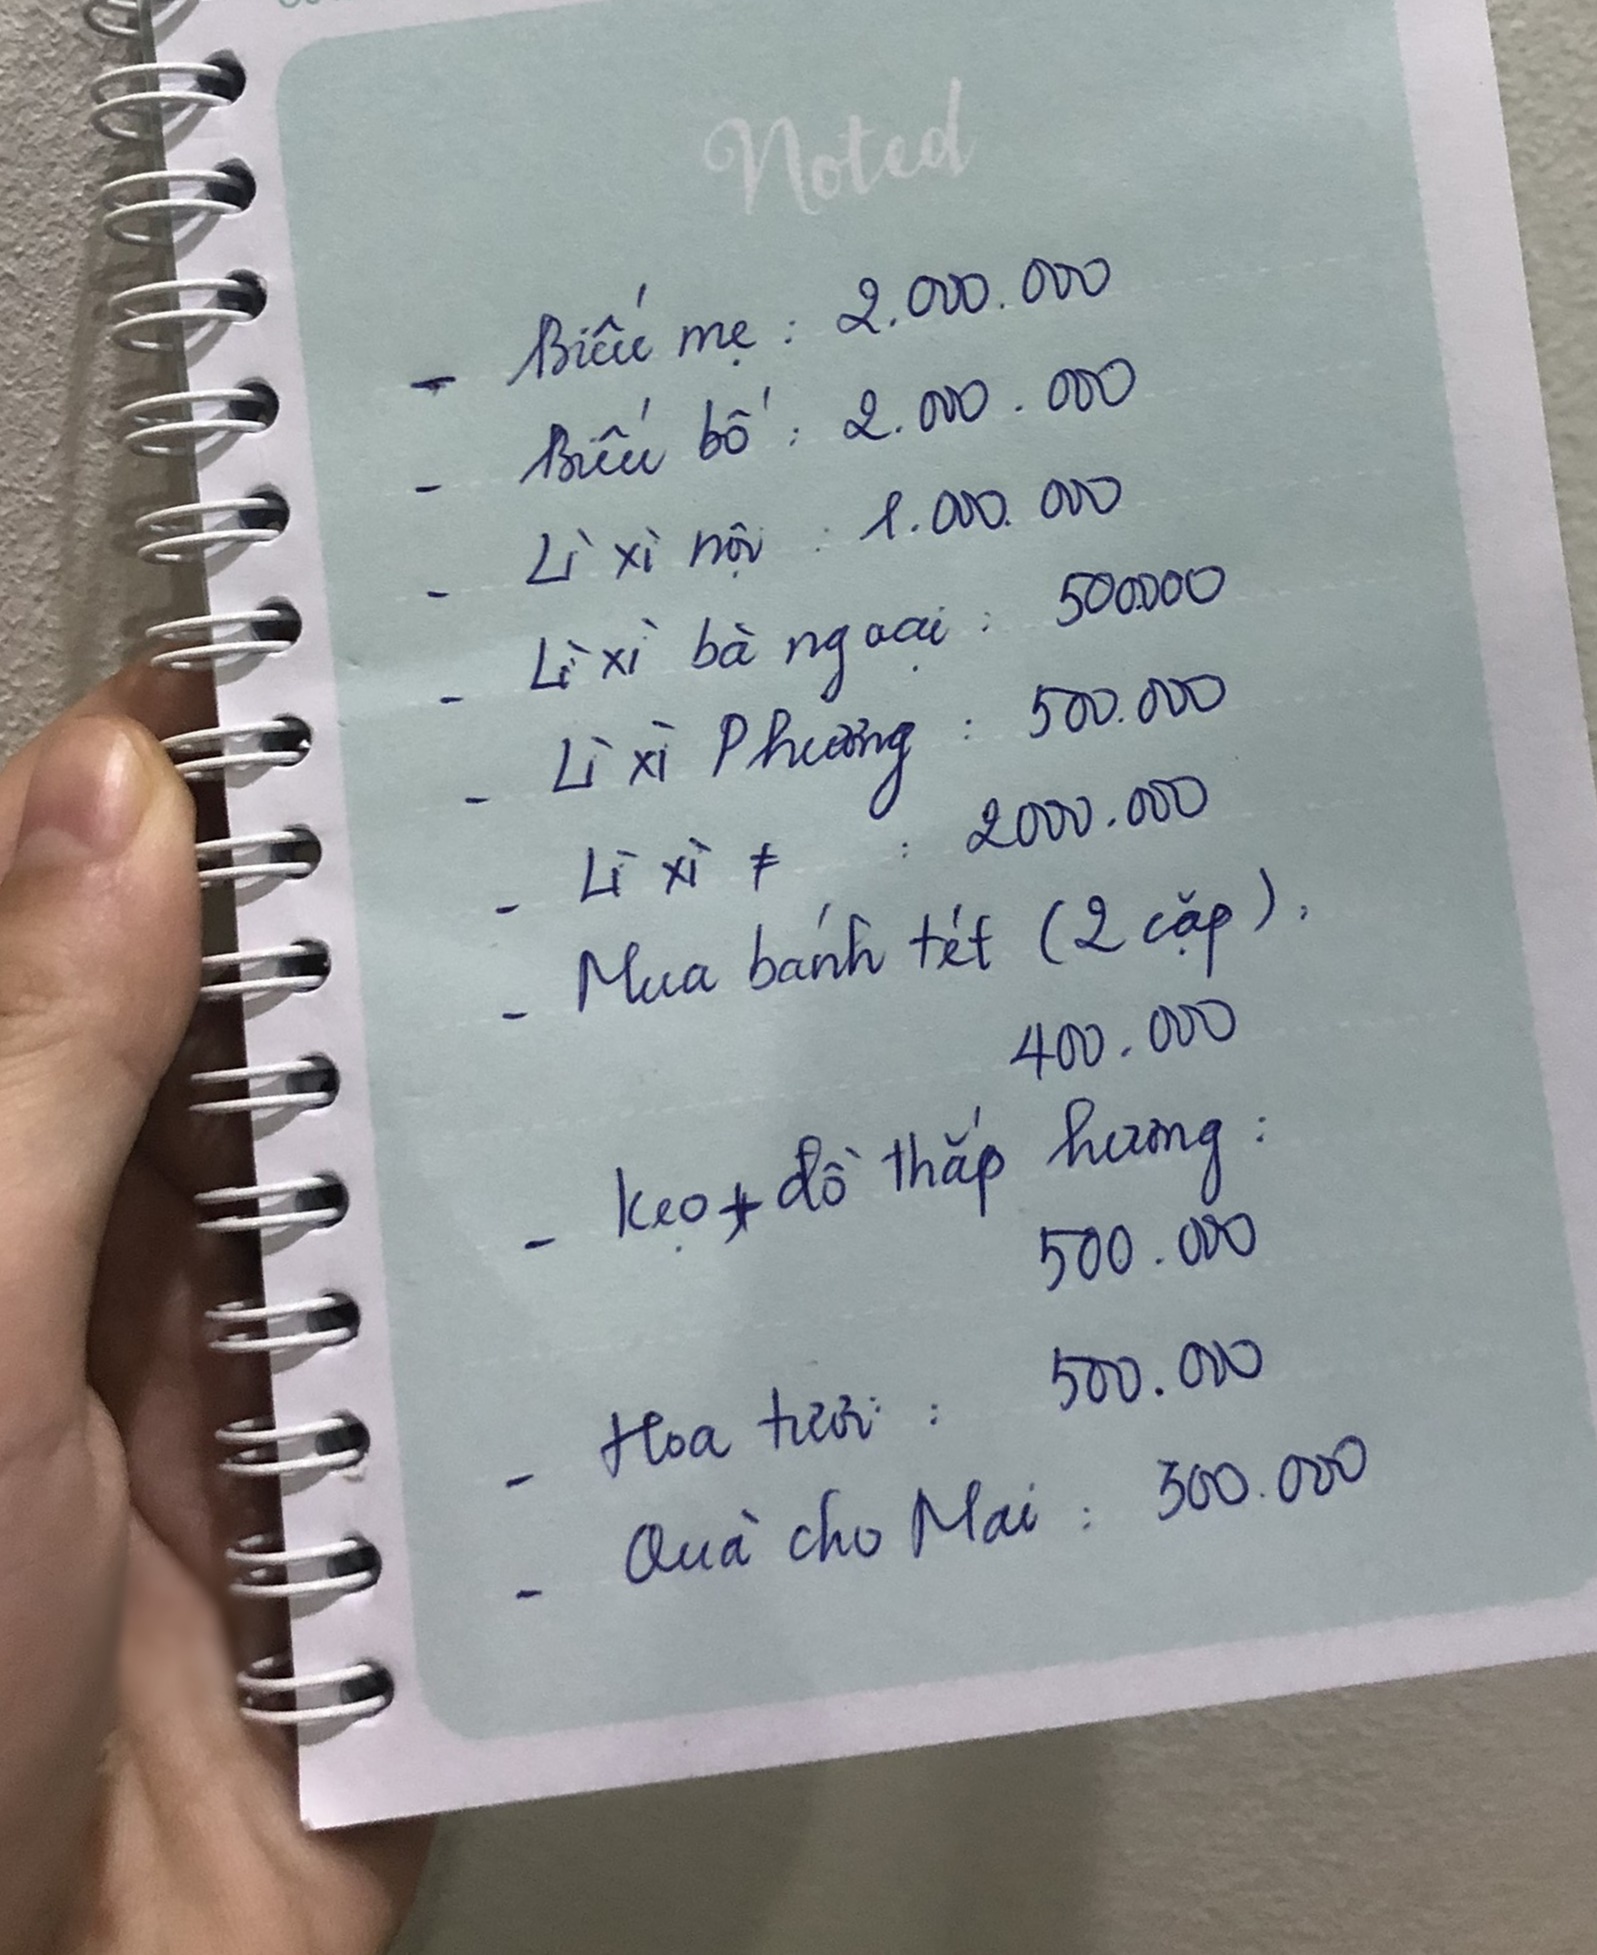 Noted
- Biếu mẹ : 2.000.000
- Biếu bố : 2.000.000
- Lì xì nội : 1.000.000
- Lì xì bà ngoại : 500.000
- Lì xì Phương : 500.000
- Lì xì ≠ : 2000.000
- Mua bánh tét (2 cặp) :
400.000
- Kẹo + đồ thắp hương :
500.000
- Hoa tươi : 500.000
- Quà cho Mai : 300.000